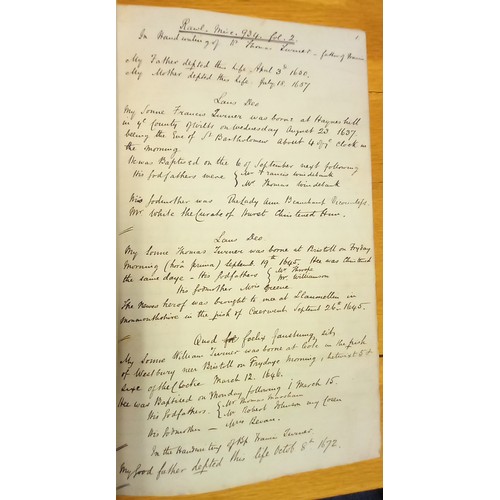 Rawl. Misc. 934. fol. 2.
In Handwriting of Dr Thomas Turner - father of
My Father depted this life, April 3th 1650.
My Mother depted this Life July 18. 1657
Laus Deo
My Sonne Francis Turner was borne at Haynes hill
in ye County of Wilts on Wednesday August 23 1637.
beeing the Eve of St Bartholomew about 4 of ye clock in
the morning.
He was Baptised on the 6 of September next following
His Godfathers were { Mr Francis Windebank
Mr Thomas Windebank
His Godmother was The Lady Ann Beauchamp
Mr White the Curate of Hurst Christened Him.
Laus Deo
My Sonne Thomas Turner was borne at Bristoll on Fryday
Morning (hora prima) Septemb 19th 1645. Hee was Christened
the same daye - His Godfathers { Mr Thorpe
Mr Williamson
His Godmother Mris Greene
The Newes herof was brought to me at Llanmellen in
Monmouthshire in the pish of Caerwent Septemb 26th 1645.
Quod faelix faustumq sit
My Sonne William Turner was borne at Cote in the pish
of Westbury neer Bristoll on Frydaye Morning, between 5 &
sixe of the Clocke March 12. 1646.
Hee was Baptised on Monday following / March 15.
His Godfathers. { Mr Thomas
Mr Robert Johnson my Cosen
His Godmother - Mris Bevan.
In the Handwriting of Bp Francis Turner.
My Good father depted this life Octob 8th 1672.